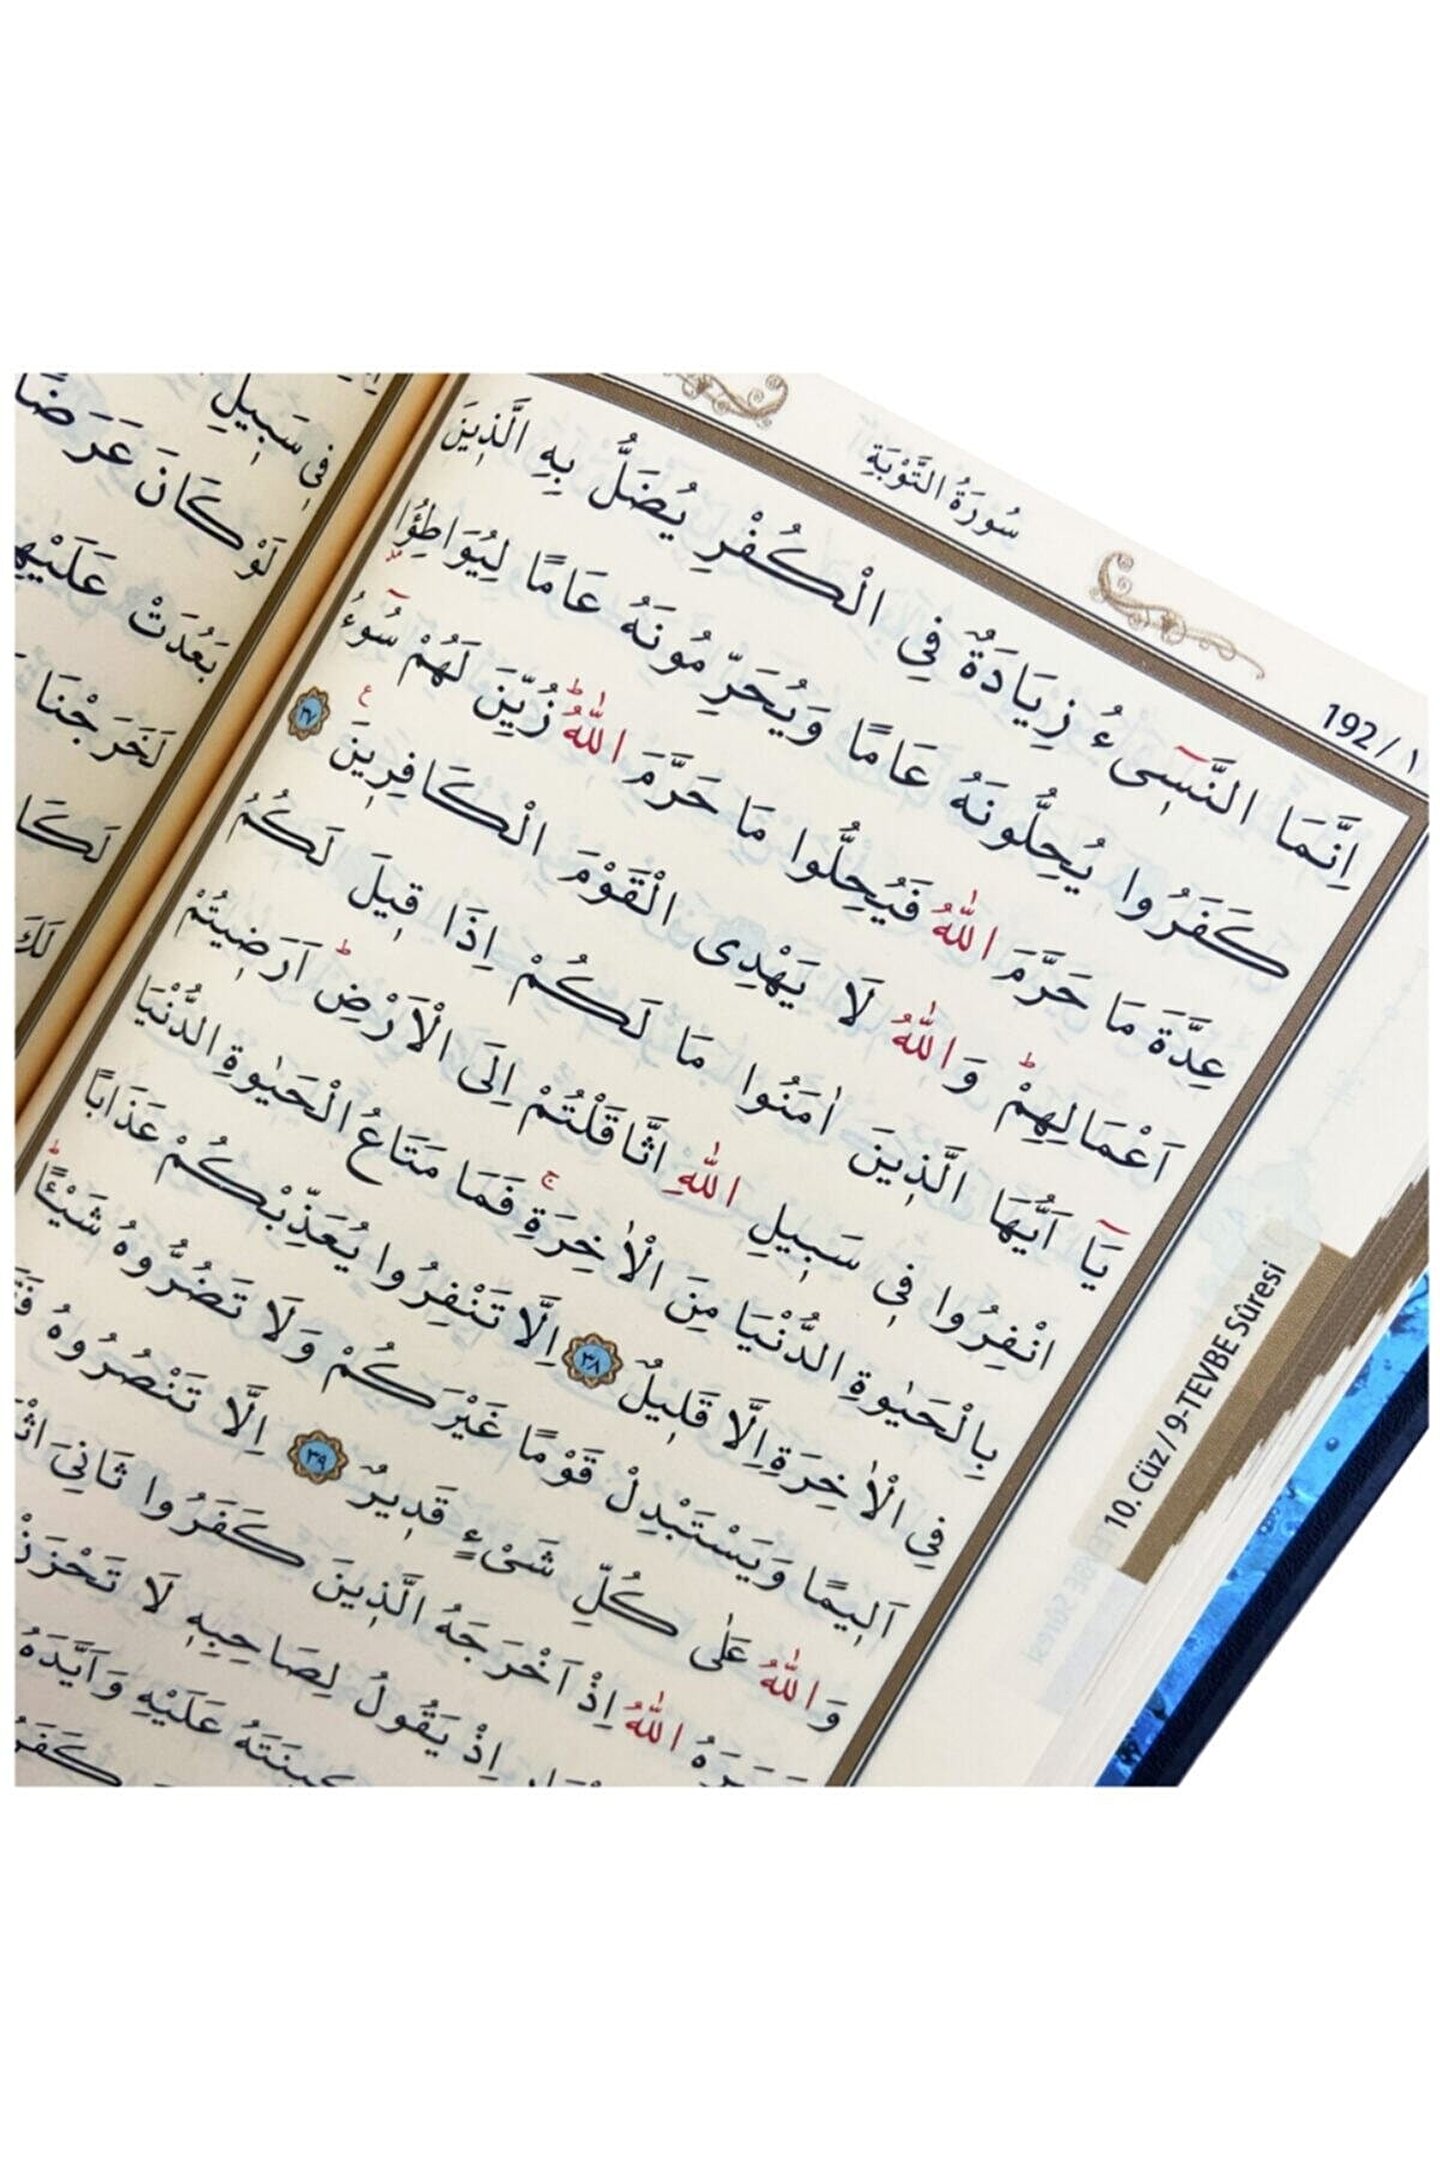 سُورَةُ التَّوْبَةِ
192/١
اِنَّمَا النَّسٖٓىءُ زِيَادَةٌ فِى الْكُفْرِ يُضَلُّ بِهِ الَّذٖينَ
كَفَرُوا يُحِلُّونَهُ عَامًا وَيُحَرِّمُونَهُ عَامًا لِيُوَاطِؤُ۫ا
عِدَّةَ مَا حَرَّمَ اللّٰهُ فَيُحِلُّوا مَا حَرَّمَ اللّٰهُؕ زُيِّنَ لَهُمْ سُٓوءُ
اَعْمَالِهِمْؕ وَاللّٰهُ لَا يَهْدِى الْقَوْمَ الْكَافِرٖينَ ع ٣٧
يَٓا اَيُّهَا الَّذٖينَ اٰمَنُوا مَا لَكُمْ اِذَا قٖيلَ لَكُمُ
انْفِرُوا فٖى سَبٖيلِ اللّٰهِ اثَّاقَلْتُمْ اِلَى الْاَرْضِؕ اَرَضٖيتُمْ
بِالْحَيٰوةِ الدُّنْيَا مِنَ الْاٰخِرَةِۚ فَمَا مَتَاعُ الْحَيٰوةِ الدُّنْيَا
فِى الْاٰخِرَةِ اِلَّا قَلٖيلٌ ٣٨ اِلَّا تَنْفِرُوا يُعَذِّبْكُمْ عَذَابًا
اَلٖيمًا وَيَسْتَبْدِلْ قَوْمًا غَيْرَكُمْ وَلَا تَضُرُّوهُ شَيْـًٔاؕ
وَاللّٰهُ عَلٰى كُلِّ شَىْءٍ قَدٖيرٌ ٣٩ اِلَّا تَنْصُرُوهُ
اللّٰهُ اِذْ اَخْرَجَهُ الَّذٖينَ كَفَرُوا ثَانِىَ
اِذْ يَقُولُ لِصَاحِبِهٖ لَا تَحْزَنْ
عَلَيْهِ وَاَيَّدَهُ
10. Cüz / 9-TEVBE Sûresi
فٖى سَبٖيلِ
لَوْ كَانَ عَرَضًا
بَعُدَتْ عَلَيْهِمُ
لَخَرَجْنَا